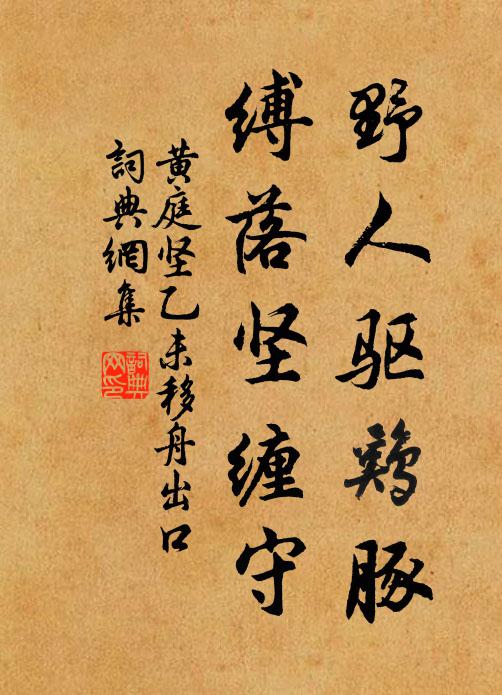 野人驱鷄豚
缚落坚缠守
黄庭坚乙未移舟出口
詞典網集
詞典网印